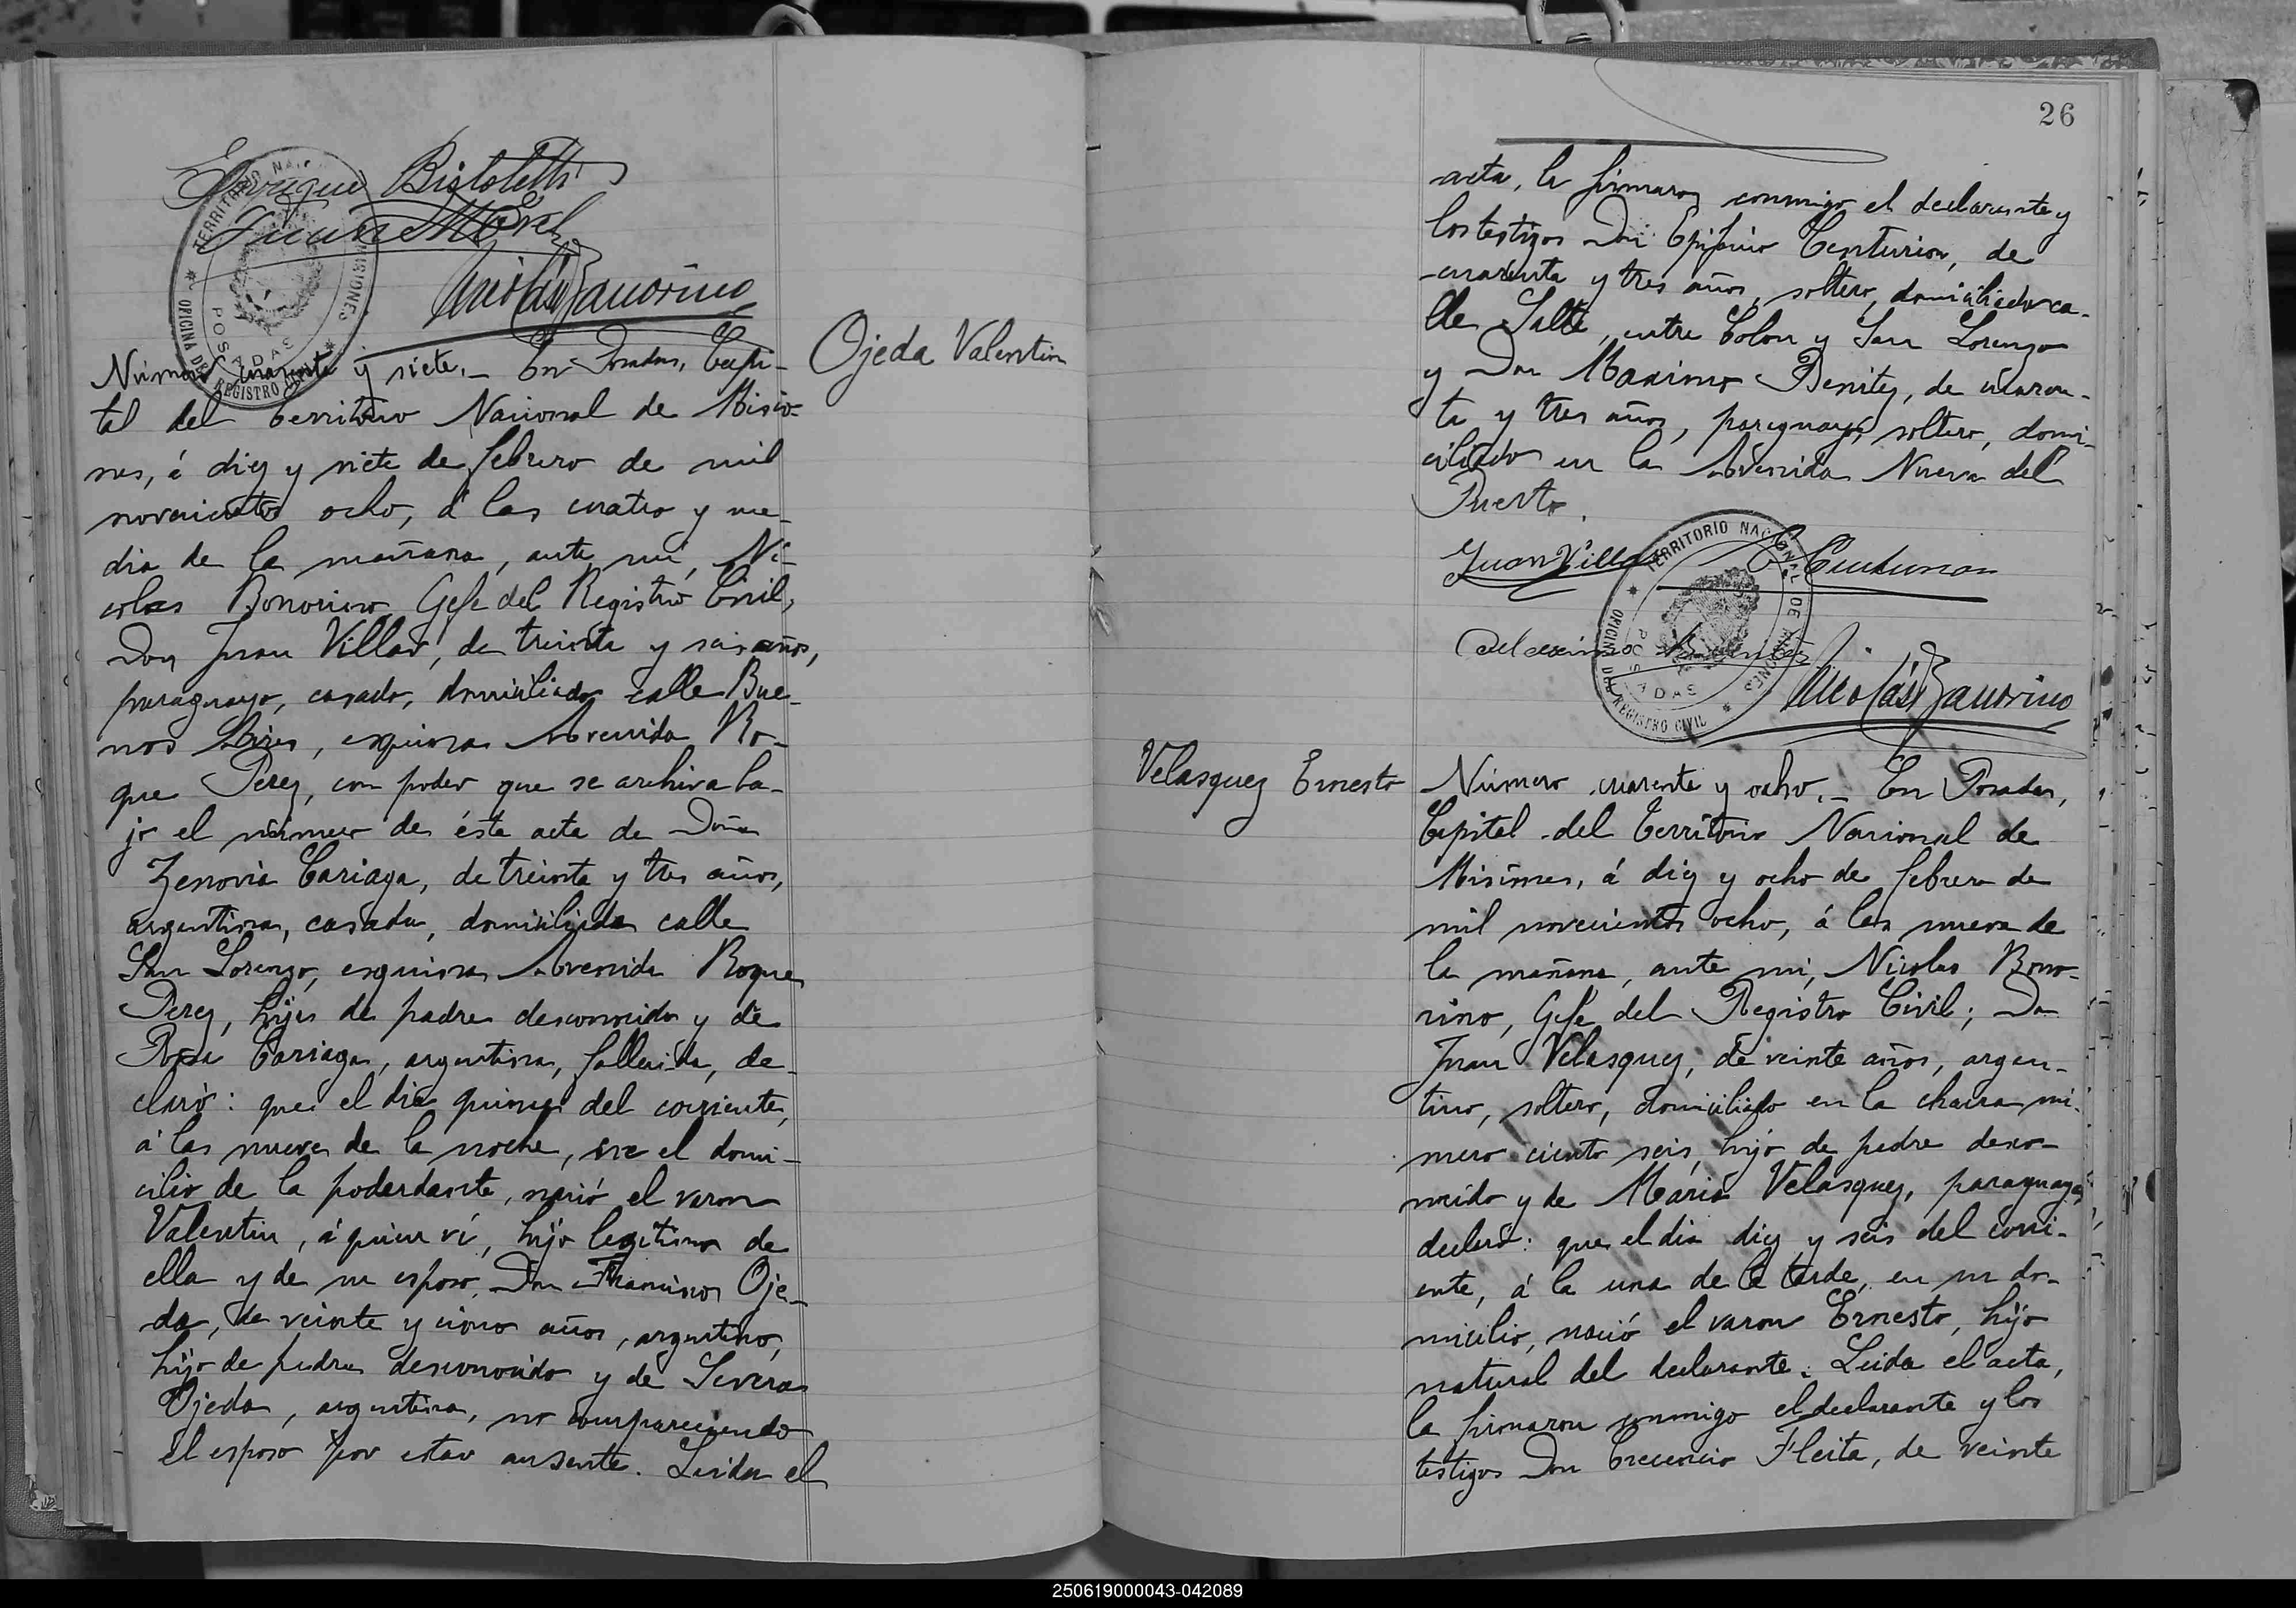 Enrique Bistoletti
Juan Morel
Nicolás Bonorino
TERRITORIO NACIONAL DE MISIONES
OFICINA DEL REGISTRO CIVIL
POSADAS
Ojeda Valentin
Número cuarenta y siete._ En Posadas, Capi-
tal del Territorio Nacional de Misio-
nes, á diez y siete de febrero de mil
novecientos ocho, á las cuatro y me-
dia de la mañana, ante mí, Ni-
colas Bonorino Gefe del Registro Civil,
Don Juan Villar, de treinta y seis años,
paraguayo, casado, domiciliado calle Bue-
nos Aires, esquina Avenida Ro-
que Perez, con poder que se archiva ba-
jo el número de ésta acta de Doña
Zenovia Cariaga, de treinta y tres años,
argentina, casada, domiciliada calle
San Lorenzo, esquina Avenida Roque
Perez, hija de padre desconocido y de
Rosa Cariaga, argentina, fallecida, de-
claró: que el dia quince del corriente,
á las nueve de la noche, en el domi-
cilio de la poderdante, nació el varon
Valentin, á quien ví, hijo legítimo de
ella y de su esposo, Don Francisco Oje-
da, de veinte y cinco años, argentino,
hijo de padre desconocido y de Severa
Ojeda, argentina, no compareciendo
el esposo por estar ausente. Leida el
26
acta, la firmaron conmigo el declarante y
los testigos Don Epifanio Centurion, de
cuarenta y tres años, soltero, domiciliado ca-
lle Salta, entre Colon y San Lorenzo
y Don Maximo Benitez, de cuaren-
ta y tres años, paraguayo, soltero, domi-
ciliado en la Avenida Nueva del
Puerto.
Juan Villar E Centurion
Maximo Benitez
Nicolás Bonorino
TERRITORIO NACIONAL DE MISIONES
OFICINA DEL REGISTRO CIVIL
POSADAS
Velasquez Ernesto
Número cuarenta y ocho._ En Posadas,
Capital del Territorio Nacional de
Misiones, á diez y ocho de febrero de
mil novecientos ocho, á las nueve de
la mañana, ante mi, Nicolas Bono-
rino, Gefe del Registro Civil; Don
Juan Velasquez, de veinte años, argen-
tino, soltero, domiciliado en la chacra nú-
mero ciento seis, hijo de padre desco-
nocido y de María Velasquez, paraguaya,
declaró: que el dia diez y seis del corri-
ente, á la una de la tarde, en su do-
micilio, nació el varon Ernesto, hijo
natural del declarante. Leida el acta,
la firmaron conmigo el declarante y los
testigos Don Crecencio Fleita, de veinte
250619000043-042089